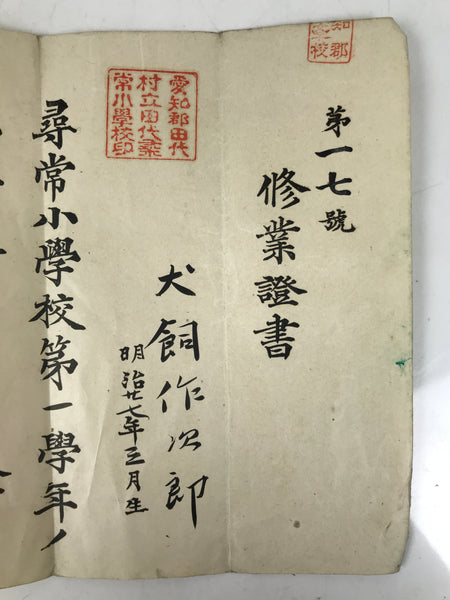 第一七號
修業證書
愛知郡田代
村立田代尋
常小學校印
犬飼作次郎
明治廿七年三月生
尋常小學校第一學年ノ